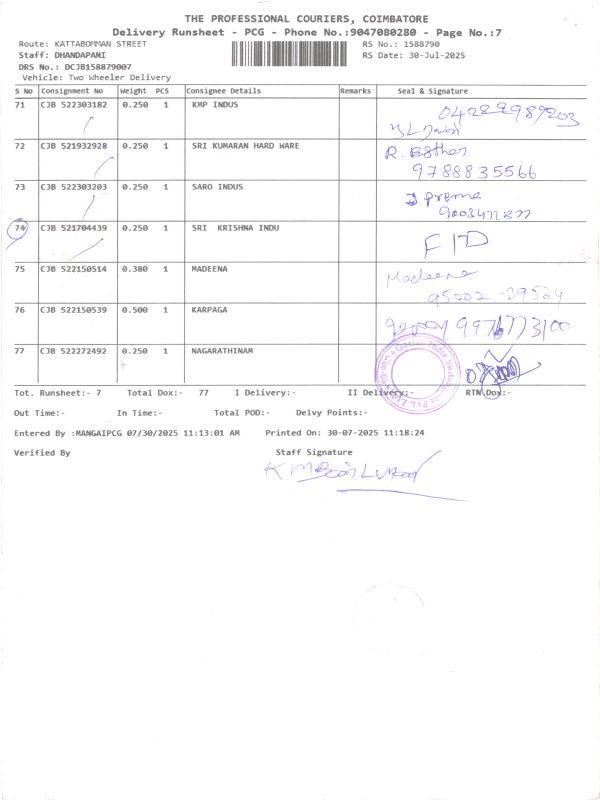 THE PROFESSIONAL COURIERS, COIMBATORE
Delivery Runsheet - PCG - Phone No.:9047080280 - Page No.:7
Route: KATTABOMMAN STREET RS No.: 1588790
Staff: DHANDAPANI RS Date: 30-Jul-2025
DRS No.: DCJB158879007
Vehicle: Two Wheeler Delivery
S No Consignment No Weight PCS Consignee Details Remarks Seal & Signature
71 CJB 522303182 0.250 1 KMP INDUS
72 CJB 521932928 0.250 1 SRI KUMARAN HARD WARE R. Esther
9788835566
73 CJB 522303203 0.250 1 SARO INDUS prema
74 CJB 521704439 0.250 1 SRI KRISHNA INDU
75 CJB 522150514 0.380 1 MADEENA Madeena
76 CJB 522150539 0.500 1 KARPAGA
77 CJB 522272492 0.250 1 NAGARATHINAM
Tot. Runsheet:- 7 Total Dox:- 77 I Delivery:- II Delivery:- RTN Dox:-
Out Time:- In Time:- Total POD:- Delvy Points:-
Entered By :MANGAIPCG 07/30/2025 11:13:01 AM Printed On: 30-07-2025 11:18:24
Verified By Staff Signature